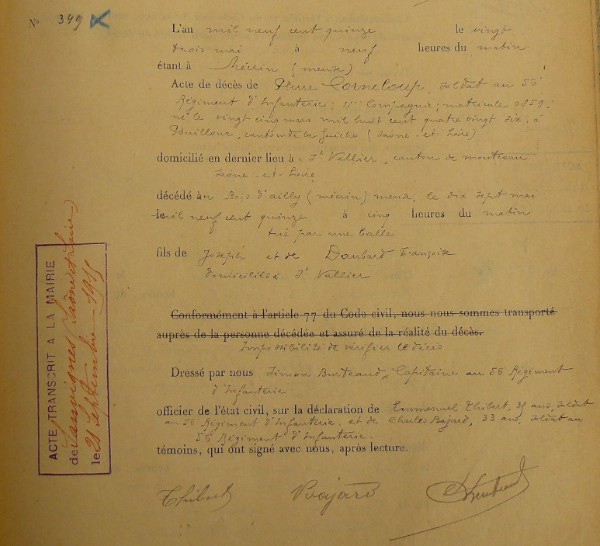 No 349
L'an mil neuf cent quinze le vingt
trois mai à neuf heures du matin
étant à Mécrin (meuse)
Acte de décès de Pierre Corneloup, soldat au 56
Régiment d'Infanterie; 11e Compagnie; matricule
né le vingt cinq mil huit cent quatre vingt six, à
Pouilloux, canton de la Guiche (Saône-et-Loire)
domicilié en dernier lieu à St Vallier, canton de montceau
Saône-et-Loire
décédé au Bois d'ailly (mécrin) meuse, le dix sept mai
mil neuf cent quinze à cinq heures du matin
tué par une balle
fils de Joseph et de Françoise
domiciliés St Vallier
Conformément à l'article 77 du Code civil, nous nous sommes transporté
auprès de la personne décédée et assuré de la réalité du décès.
Impossibilité de vérifier le décès
Dressé par nous Simon Capitaine au 56 Régiment
d'Infanterie
officier de l'état civil, sur la déclaration de Emmanuel Thibert, ans, soldat
au 56 Régiment d'Infanterie, et de Charles Bajard, 33 ans, soldat au
56 Régiment d'Infanterie.
témoins, qui ont signé avec nous, après lecture.
Thibert Bajard
ACTE TRANSCRIT A LA MAIRIE
de Sanvignes Saône et Loire
le 21 septembre 1915